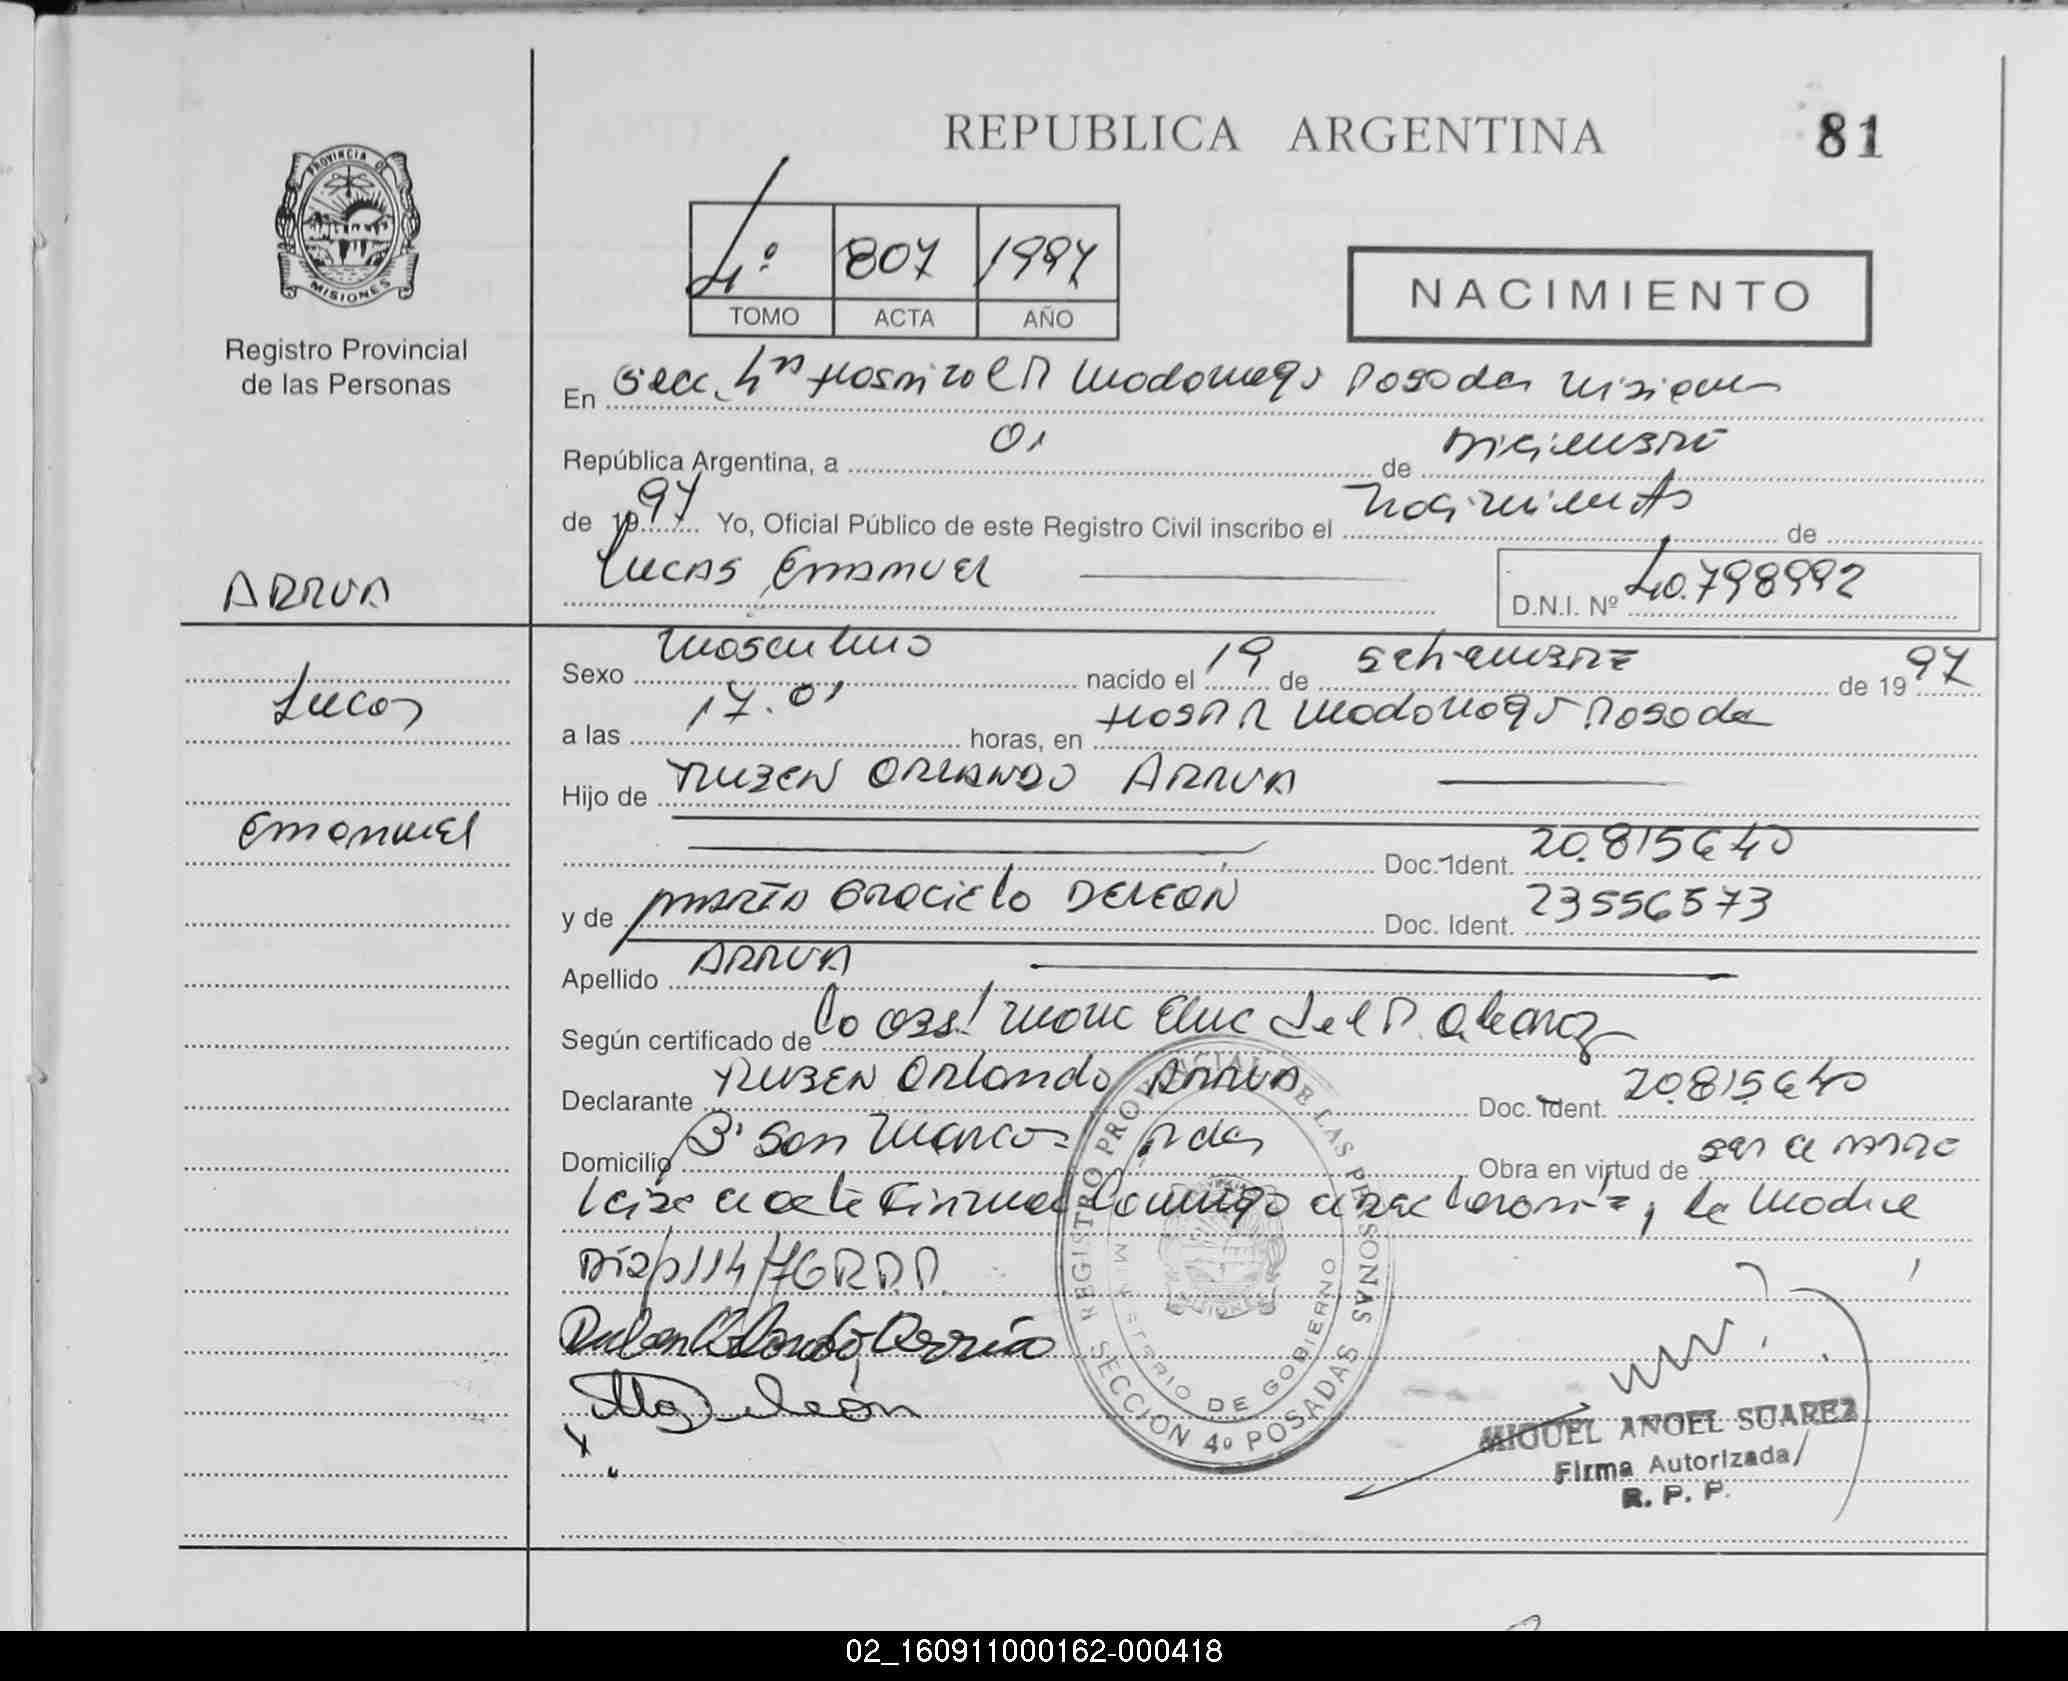 REPUBLICA ARGENTINA
81
PROVINCIA DE
MISIONES
Registro Provincial
de las Personas
4º 807 1997
TOMO ACTA AÑO
NACIMIENTO
En Secc. 4ta Hospital R Madariaga Posadas Misiones
República Argentina, a 01 de Diciembre
de 1997 Yo, Oficial Público de este Registro Civil inscribo el Nacimiento de
ARRUA
Lucas Emanuel
D.N.I. Nº 40.798992
Sexo Masculino nacido el 19 de Setiembre de 1997
Lucas
a las 17.01 horas, en Hosp R Madariaga Posadas
Hijo de RUBEN ORLANDO ARRUA
Emanuel
Doc. Ident. 20.815640
y de MARIA Graciela DELEON Doc. Ident. 23556573
Apellido ARRUA
Según certificado de la Obst. del
Declarante RUBEN Orlando ARRUA Doc. Ident. 20.815.640
Domicilio Bº San Marcos Pdas Obra en virtud de ser el padre
leida el acta firma conmigo el declarante y la Madre
Disp 114/ R.P.P.
Ruben Orlando Arrua
REGISTRO PROVINCIAL DE LAS PERSONAS
MINISTERIO DE GOBIERNO
SECCION 4º POSADAS
MIGUEL ANGEL SUAREZ
Firma Autorizada
R. P. P.
02_160911000162-000418